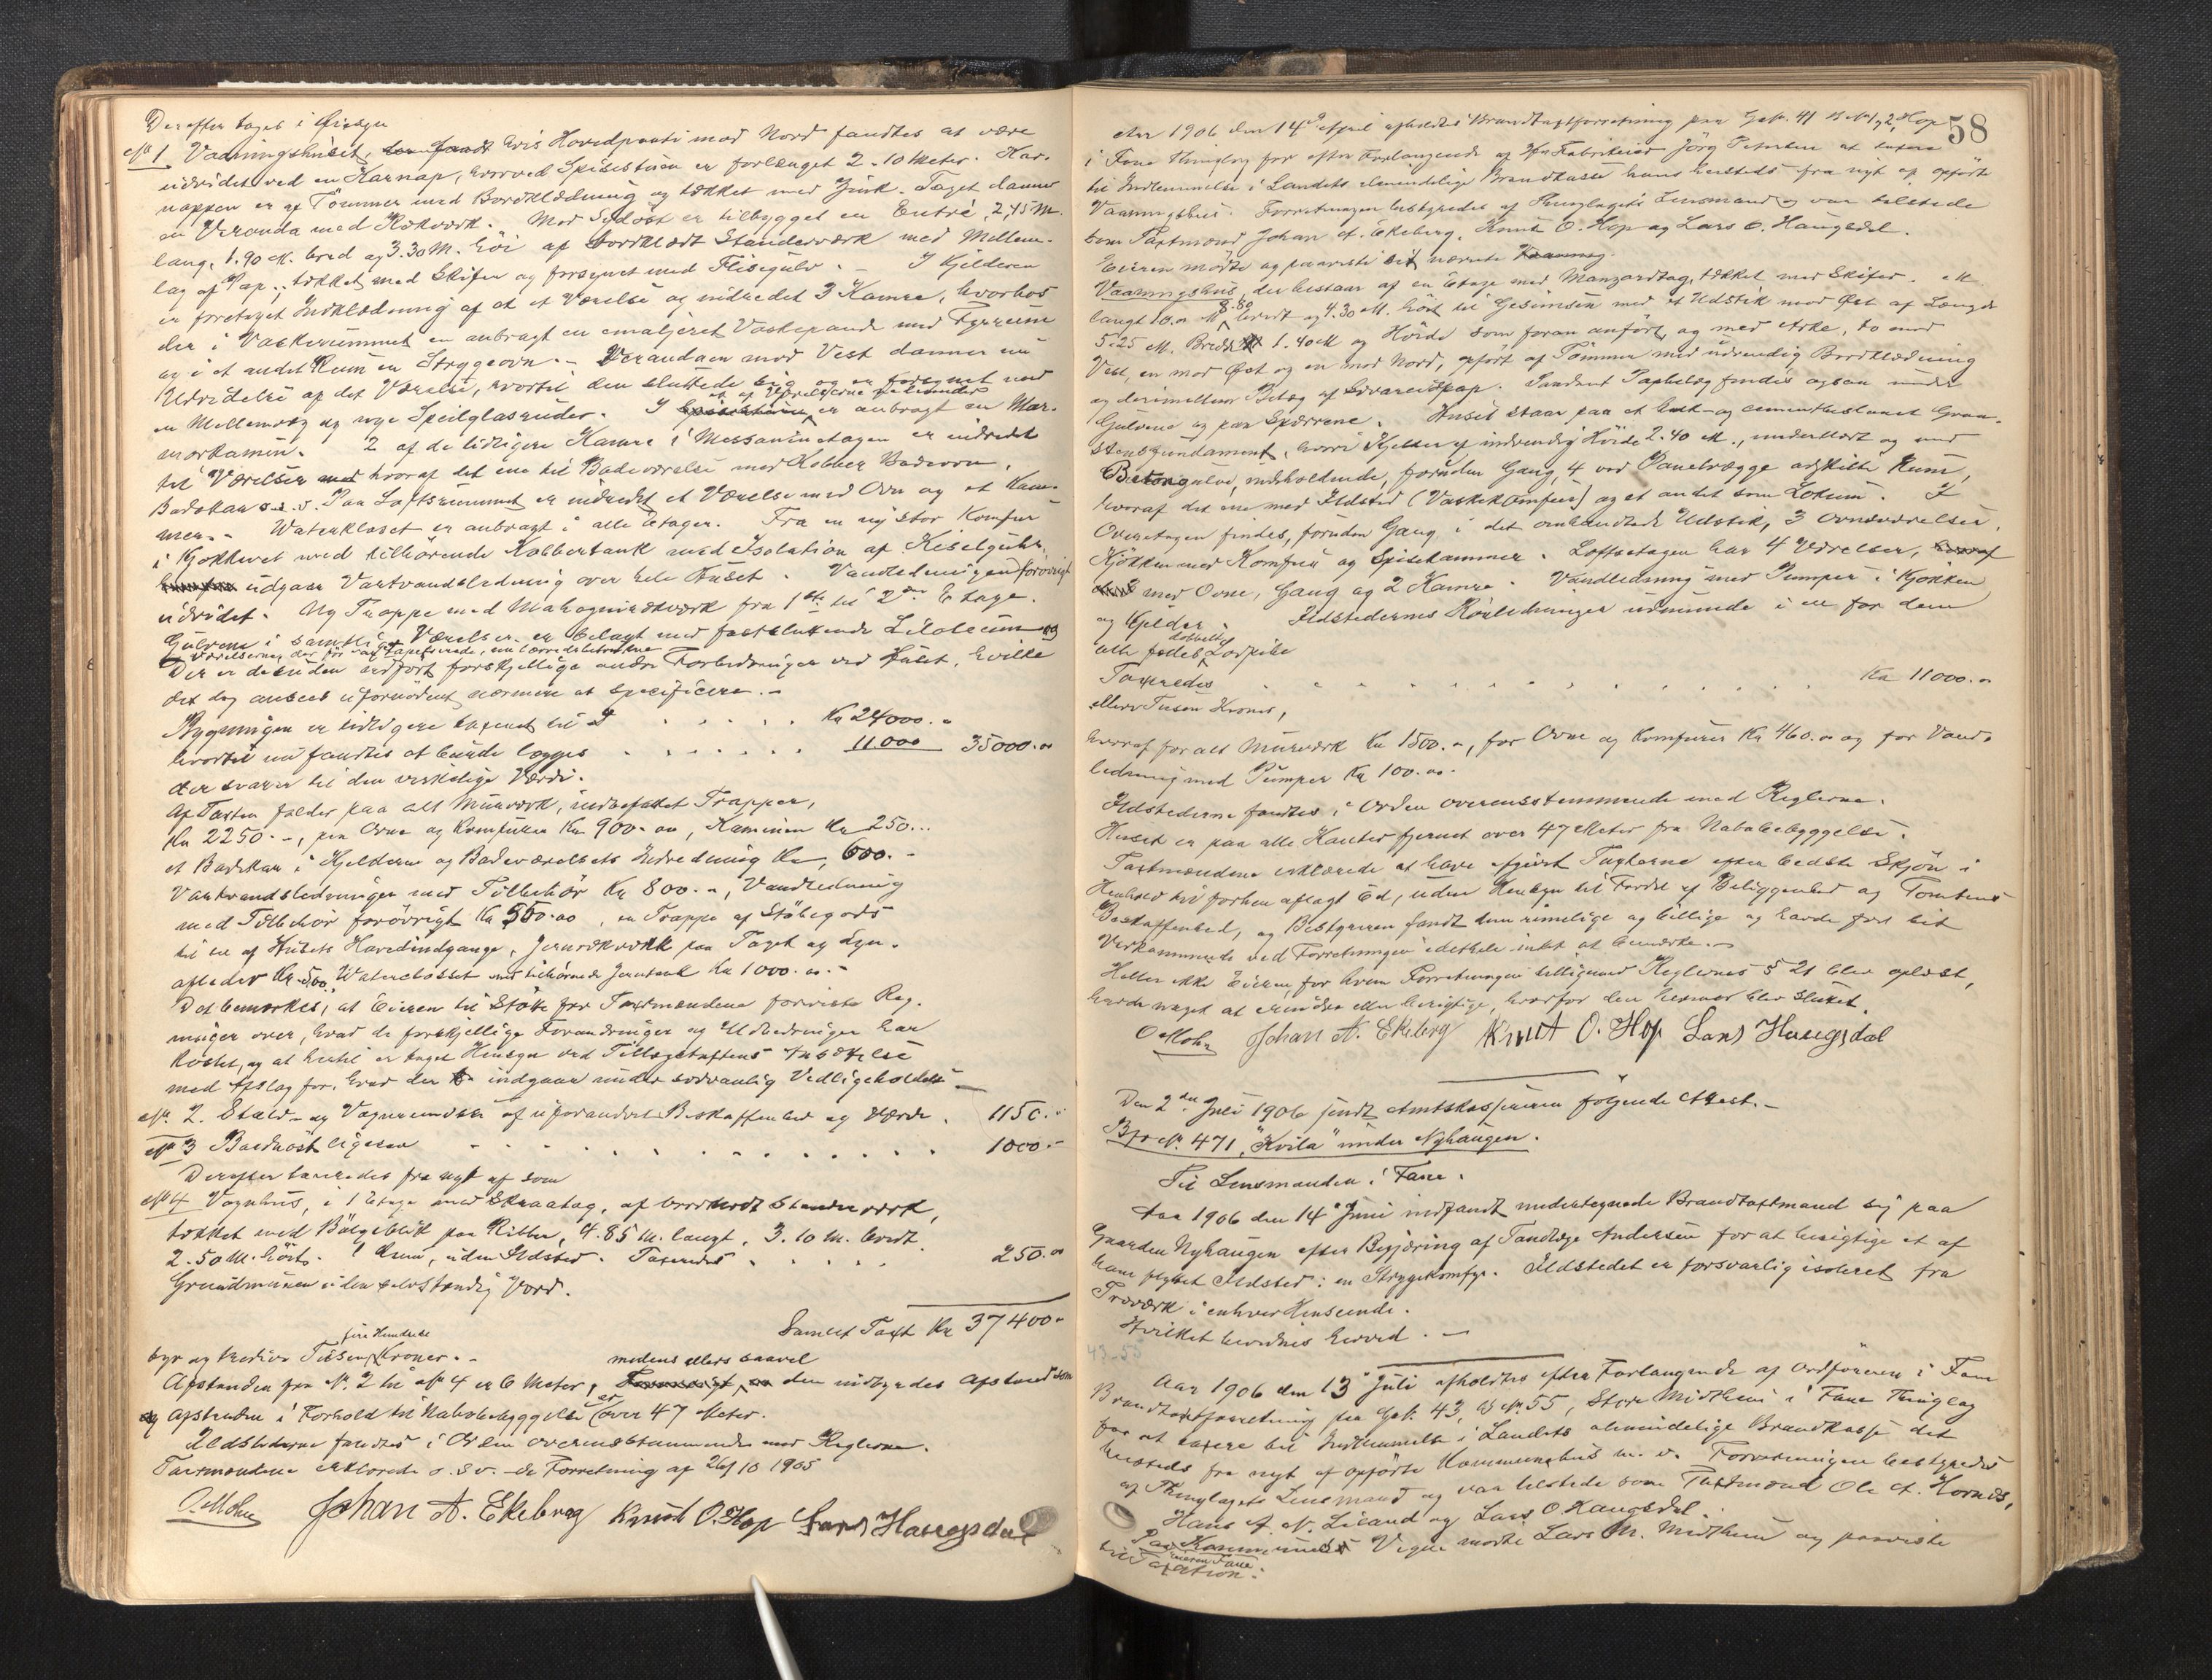 Derefter toges i Øiesyn
No 1. Vaaningshuset, hvis Hovedparti mod Nord fandtes at være
udvidet ved en Karnap, hvorved Spisestuen er forlænget 2.10 Meter. Kar-
nappen er af Tømmer med Bordklædning og tækket med Zink. Taget danner
en Veranda med Rækværk. Mod Sydost er tilbygget en Entré, 2,45 M.
lang, 1.90 M. bred og 3.30 M. høi af bordklædt Stænderværk med Mellem-
lag af Pap, tækket med Skifer og forsynet med Flisegulv. - I Kjelderen
er foretaget Indklædning af et Værelse og indredet 3 Kamre, hvorhos
der i Vaskerummet er anbragt en emaljeret Vaskepande med Fyrrum
og i et andet Rum en Strygeovn. - Verandaen mod Vest danner nu
Udvidelse af det Værelse, hvortil den sluttede sig og er forsynet med
en Mellemvæg og nye Speilglasruder. I et af Værelserne er anbragt en Mar-
morkamin. 2 af de tidligere Kamre i Messaninetagen er indredet
til Værelser hvoraf det ene til Badeværelse med Kobber Badeovn,
Badekar o.s.v. Paa Loftsrummet er indredet et Værelse med Ovn og et Kam-
mer. - Waterkloset er anbragt i alle Etager. Fra en ny stor Komfur
i Kjøkkenet med tilhørende Kobbertank med Isolation af Keselguhr
udgaar Varmvandsledning over hele Huset. Vandledningen forøvrigt
udvidet. Ny Trappe med Mahognirækværk fra 1ste til 2den Etage.
Gulvene i samtlige Værelser er belagt med fastslukende Linoleum og
Der er desuden udført forskjellige andre Forbedringer ved Huset, hvilke
det dog ansees ufornødent nærmere at specificere. -
Bygningen er tidligere taxeret til . . . . . Kr 24000.-
hvortil nu fandtes at burde lægges . . . . . 11000 35000.00
der svarer til den virkelige Værdi.
Af Taxten falder paa alt Murværk, indbefattet Trapper,
Kr 2250.-, paa Ovne og Komfurer Kr 900.00, Kaminen Kr 250...
et Badekar i Kjelderen og Badeværelsets Indredning Kr 600.-
Varmvandsledningen med Tilbehør Kr 800.-, Vandledning
med Tilbehør forøvrigt Kr 550.00, en Trappe af Støbegods
til en af Husets Hovedindgange, Jernrækværk paa Taget og Lyn-
afleder Kr 500, Waterclosset med tilhørende Jerntank Kr 1000.00.-
Det bemærkes, at Eieren til Støtte for Taxtmændene foreviste Reg-
ninger over, hvad de forskjellige Forandringer og Udbedringer har
kostet, og at hertil er taget Hensyn ved Tillægstaxtens Ansættelse
med Afslag for, hvad der indgaar under sædvanlig Vedligeholdelse -
No 2. Stald- og Vognremisse af uforandret Beskaffenhed og Værdi. 1150.-
No 3 Baadnøst ligesaa . . . . . . . . . . 1000.-
Derefter taxeredes fra nyt af som
No 4 Vognhus, i 1 Etage med Skraatag, af bordklædt Stænderværk,
tækket med Bølgeblik paa Rilter, 4.85 M. langt, 3.10 M. bredt
2.50 M. høit. 1 Rum, uden Ildsted. Taxeredes . . . . . 250.00
Grundmuren uden selvstændig Værd.
Samlet Taxt Kr 37400.-
fire Hundrede
syv og tredive Tusen Kroner. -
medens ellers saavel
Afstanden fra No. 2 til No 4 er 6 Meter, den indbyrdes Afstand som
Afstanden i Forhold til Nabobebyggelse er over 47 Meter.
Ildstederne fandtes i Orden overensstemmende med Reglerne.
Taxtmændene erklærede o.s.v. - de Forretning af 26/10 1905
O Mohn Johan A. Ekeberg Knut O. Hop Lars Haugsdal
58
Aar 1906 den 14de April afholdtes Brandtaxtforretning paa Gno. 41 B No 192, Hop
i Fane Thinglag for efter Forlangende af Hr Fabrikeier Jörg Petersen at taxere
til Indlemmelse i Landets almindelige Brandkasse hans hersteds fra nyt af opførte
Vaaningshus. Forretningen bestyredes af Thinglagets Lensmand og var tilstede
som Taxtmænd Johan A. Ekeberg, Knut O. Hop og Lars O. Haugsdal.
Eieren mødte og paaviste det nævnte
Vaaningshus, der bestaar af en Etage med Manzardtag, tækket med Skifer.
langt 10.00 M 8.80 bredt og 4.30 M. høit til Gesimsen med et Udstik mod Øst af Længde
5.25 M. Bredde 1.40 M og Høide som foran anført, og med Arke, to mod
Vest, en mod Øst og en mod Nord, opført af Tømmer med udvendig Bordklædning
og derimellem Betæg af Asvareidpap. Saadant Paplag findes ogsaa under
Gulvene og paa Sperrene. Huset staar paa et kalk- og cementbestanet Graa-
stensfundament, hvori Kjelder af indvendig Høide 2.40 M., underklædt og med
Betongulve, indeholdende, foruden Gang, 4 ved Panelvægge adskilte Rum,
hvoraf det ene med Ildsted (Vaskekomfur) og et andet som Lokum. I
Overetagen findes, foruden Gang i det omhandlede Udstik, 3 Ovnsværelser,
Kjøkken med Komfur og Spisekammer. Loftsetagen har 4 Værelser,
med Ovne, Gang og 2 Kamre. Vandledning med Pumper i Kjøkken
og Kjelder. Ildstedernes Rørledninger udmunde i en for dem
alle fælles dobbelt Lodpibe
Taxeredes . . . . . . . . . . . . . Kr 11000.00
elleve Tusen Kroner,
hvoraf for alt Murværk Kr 1500.-, for Ovne og Komfurer Kr 460.00 og for Vand-
ledning med Pumper Kr 100.00.
Ildstederne fandtes i Orden overensstemmende med Reglerne.
Huset er paa alle Kanter fjernet over 47 Meter fra Nabobebyggelse.
Taxtmændene erklærede at have afgivet Taxterne efter bedste Skjøn i
Henhold til forhen aflagt Ed, uden Hensyn til Fordel af Beliggenhed og Tomtens
Beskaffenhed, og Bestyreren fandt dem rimelige og billige og havde for sit
Vedkommende ved Forretningen idethele intet at bemærke. -
Heller ikke Eieren, for hvem Forretningen i Medhold af Reglernes § 21 blev oplæst,
havde noget at erindre eller berigtige, hvorfor den hermed blev sluttet.
O Mohn Johan A. Ekeberg Knut O. Hop Lars Haugsdal
Den 2den Juli 1906 sendt Amtskassereren følgende Attest. -
B No. 471, "Kvila" under Nyhaugen.
Til Lensmanden i Fane.
Aar 1906 den 14de Juni indfandt undertegnede Brandtaxtmand sig paa
Gaarden Nyhaugen efter Begjæring af Tandlæge Andersen for at besigtige et af
ham flyttet Ildsted: en Strygekomfyr. Ildstedet er forsvarlig isoleret fra
Træværk i enhver Henseende.
Hvilket bevidnes herved. -
43-55
Aar 1906 den 13de Juli afholdtes efter Forlangende af Ordføreren i Fane
Brandtaxtforretning paa Gno. 43, B No. 55, Store Midtbun i Fane Thinglag
for at taxere til Indlemmelse i Landets almindelige Brandkasse det
hersteds fra nyt af opførte Kommunehus m. v. Forretningen bestyredes
af Thinglagets Lensmand og var tilstede som Taxtmænd Ole A. Hornes,
Hans A. N. Liland og Lars O Haugsdal.
Paa Kommunens Vegne mødte Lars M. Midtbun og paaviste
til Taxation: